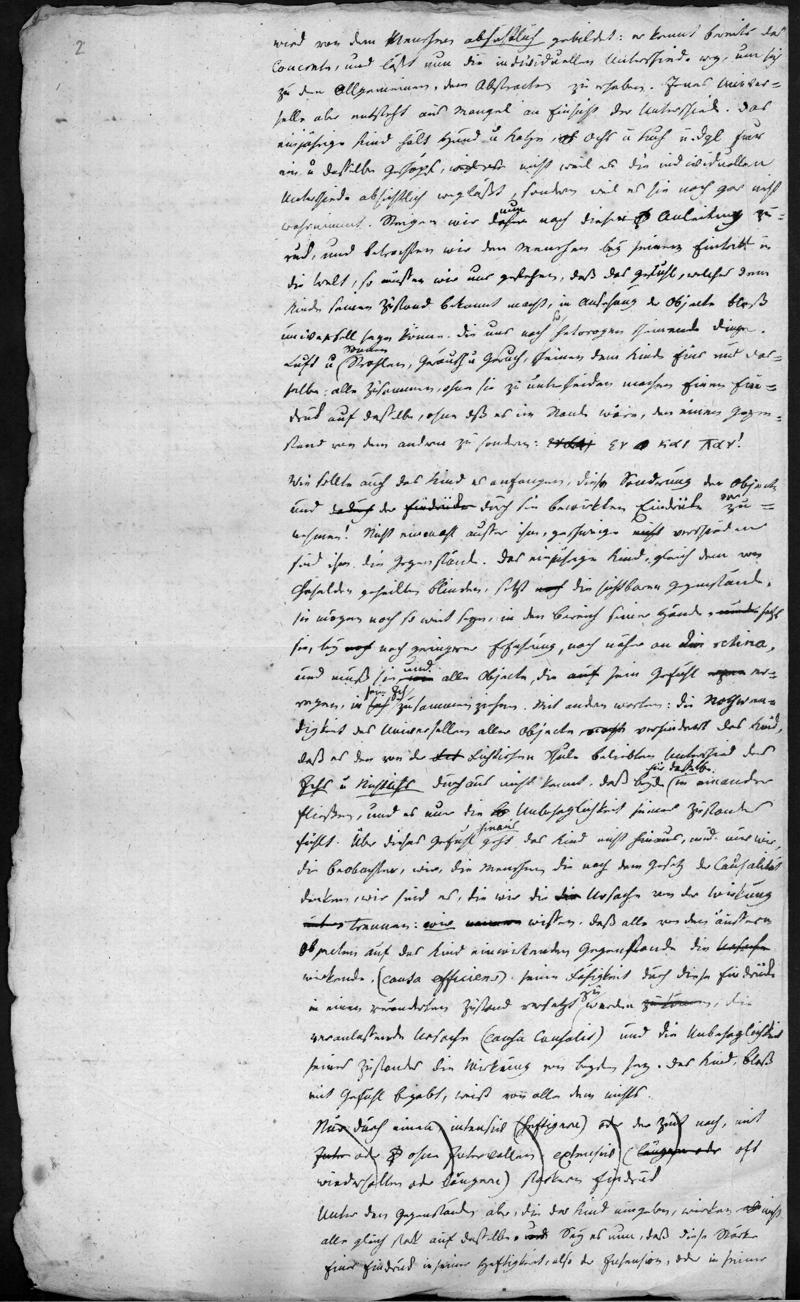 2
wird von dem Menschen absichtlich gebildet: er kennt bereits das
Concrete, und läßt nun die individuellen Unterschiede weg, um sich
zu dem Allgemeinen, dem Abstracten zu erheben. Jenes Univer-
selle aber entsteht aus Mangel an Einsicht der Unterschiede. Das
einjährige Kind hält Hund u Katze, Ochs u Kuh u. dgl. fuer
ein u dasselbe Geschöpf, nicht weil es die individuellen
Unterschiede absichtlich wegläßt, sondern weil es sie noch gar nicht
wahrnimmt. Steigen wir nun nach dieser Anleitung zu-
rück, und betrachten wir den Menschen bey seinem Eintritt in
die Welt, so müssen wir uns gestehen, daß das Gefühl, welches dem
Kinde seinen Zustand bekannt macht, in Ansehung der Objecte bloß
universell seyn könne. Die uns noch so heterogen scheinende Dinge.
Luft u Sonnen Strahlen, Geräusch u Geruch, scheinen dem Kinde Eins und das-
selbe: alle zusammen, ohne sie zu unterscheiden machen Einen Ein-
druck auf dasselbe, ohne daß es im Stande wäre, den einen Gegen-
stand von dem andern zu sondern: εν και παν!
Wie sollte auch das Kind es anfangen, diese Sonderung der Objecte
und der durch sie bewirkten Eindrücke vorzu-
nehmen! Nicht einmal ausser ihm, geschweige verschieden
sind ihm die Gegenstände. Das einjährige Kind, gleich dem von
Cheselden geheilten Blinden, setzt die sichtbaren Gegenstände,
sie mögen noch so weit seyn, in den Bereich seiner Hände, setzt
sie, bey noch geringerer Erfahrung, noch näher an die retina,
und muß sie und alle Objecte, die sein Gefühl er-
regen, in sein Ich zusammenziehen. Mit andern Worten: die Nothwen-
digkeit des Universellen aller Objecte verhindert das Kind,
daß es den von der Fichtischen Schule beliebten Unterschied des
Ichs u Nichtichs durchaus nicht kennt, daß beyde für dasselbe in einander
fließen, und es nur die Unbehaglichkeit seines Zustandes
fühlt. Über dieses Gefühl hinaus geht das Kind nicht, nur wir,
die Beobachter, wir, die Menschen die nach dem Gesetz der Causalität
denken, wir sind es, die wir die Ursache von der Wirkung
trennen: wir wissen, daß alle von den äussern
Objecten auf das Kind einwirkenden Gegenstände die
wirkende, (causa efficiens) seine Fähigkeit durch diese Eindrücke
in einen veränderten Zustand versetzt zu werden, die
veranlassende Ursache (causa causalis) und die Unbehaglichkeit
seines Zustandes die Wirkung von beyden sey. Das Kind, bloß
mit Gefühl begabt, weiß von alle dem nichts.
Nur durch einen intensiv (heftigern) oder der Zeit nach, mit
oder ohne Intervallen, extensiv ( oft
wiederholten oder längern) stärkern Eindruck
Unter den Gegenständen aber, die das Kind umgeben, wirken nicht
alle gleich stark auf dasselbe. Sey es nun, daß diese Stärke
Eines Eindruck in seiner Heftigkeit, also der Intension, oder in seiner